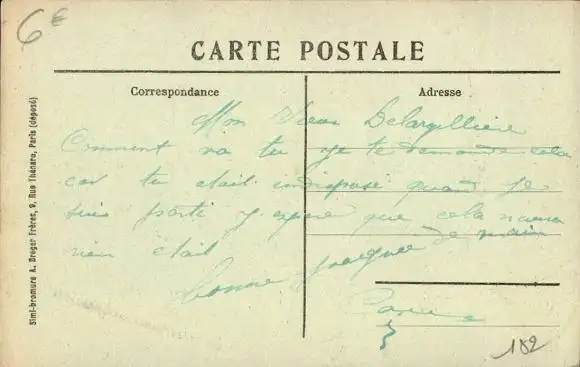 6€
CARTE POSTALE
Correspondance
Adresse
Simi-bromure A. Breger Frères, 9, Rue Thénard, Paris (déposé)
Mon Vieux Delargillière
Comment va tu je te demande cela
car tu étais indisposé quand je
suis parti j espère que cela
rien était
bonne
182